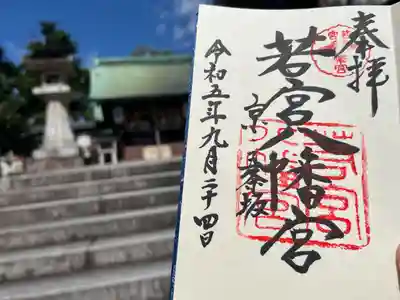 奉拝
若宮八幡宮
京 五条坂
令和五年九月二十四日